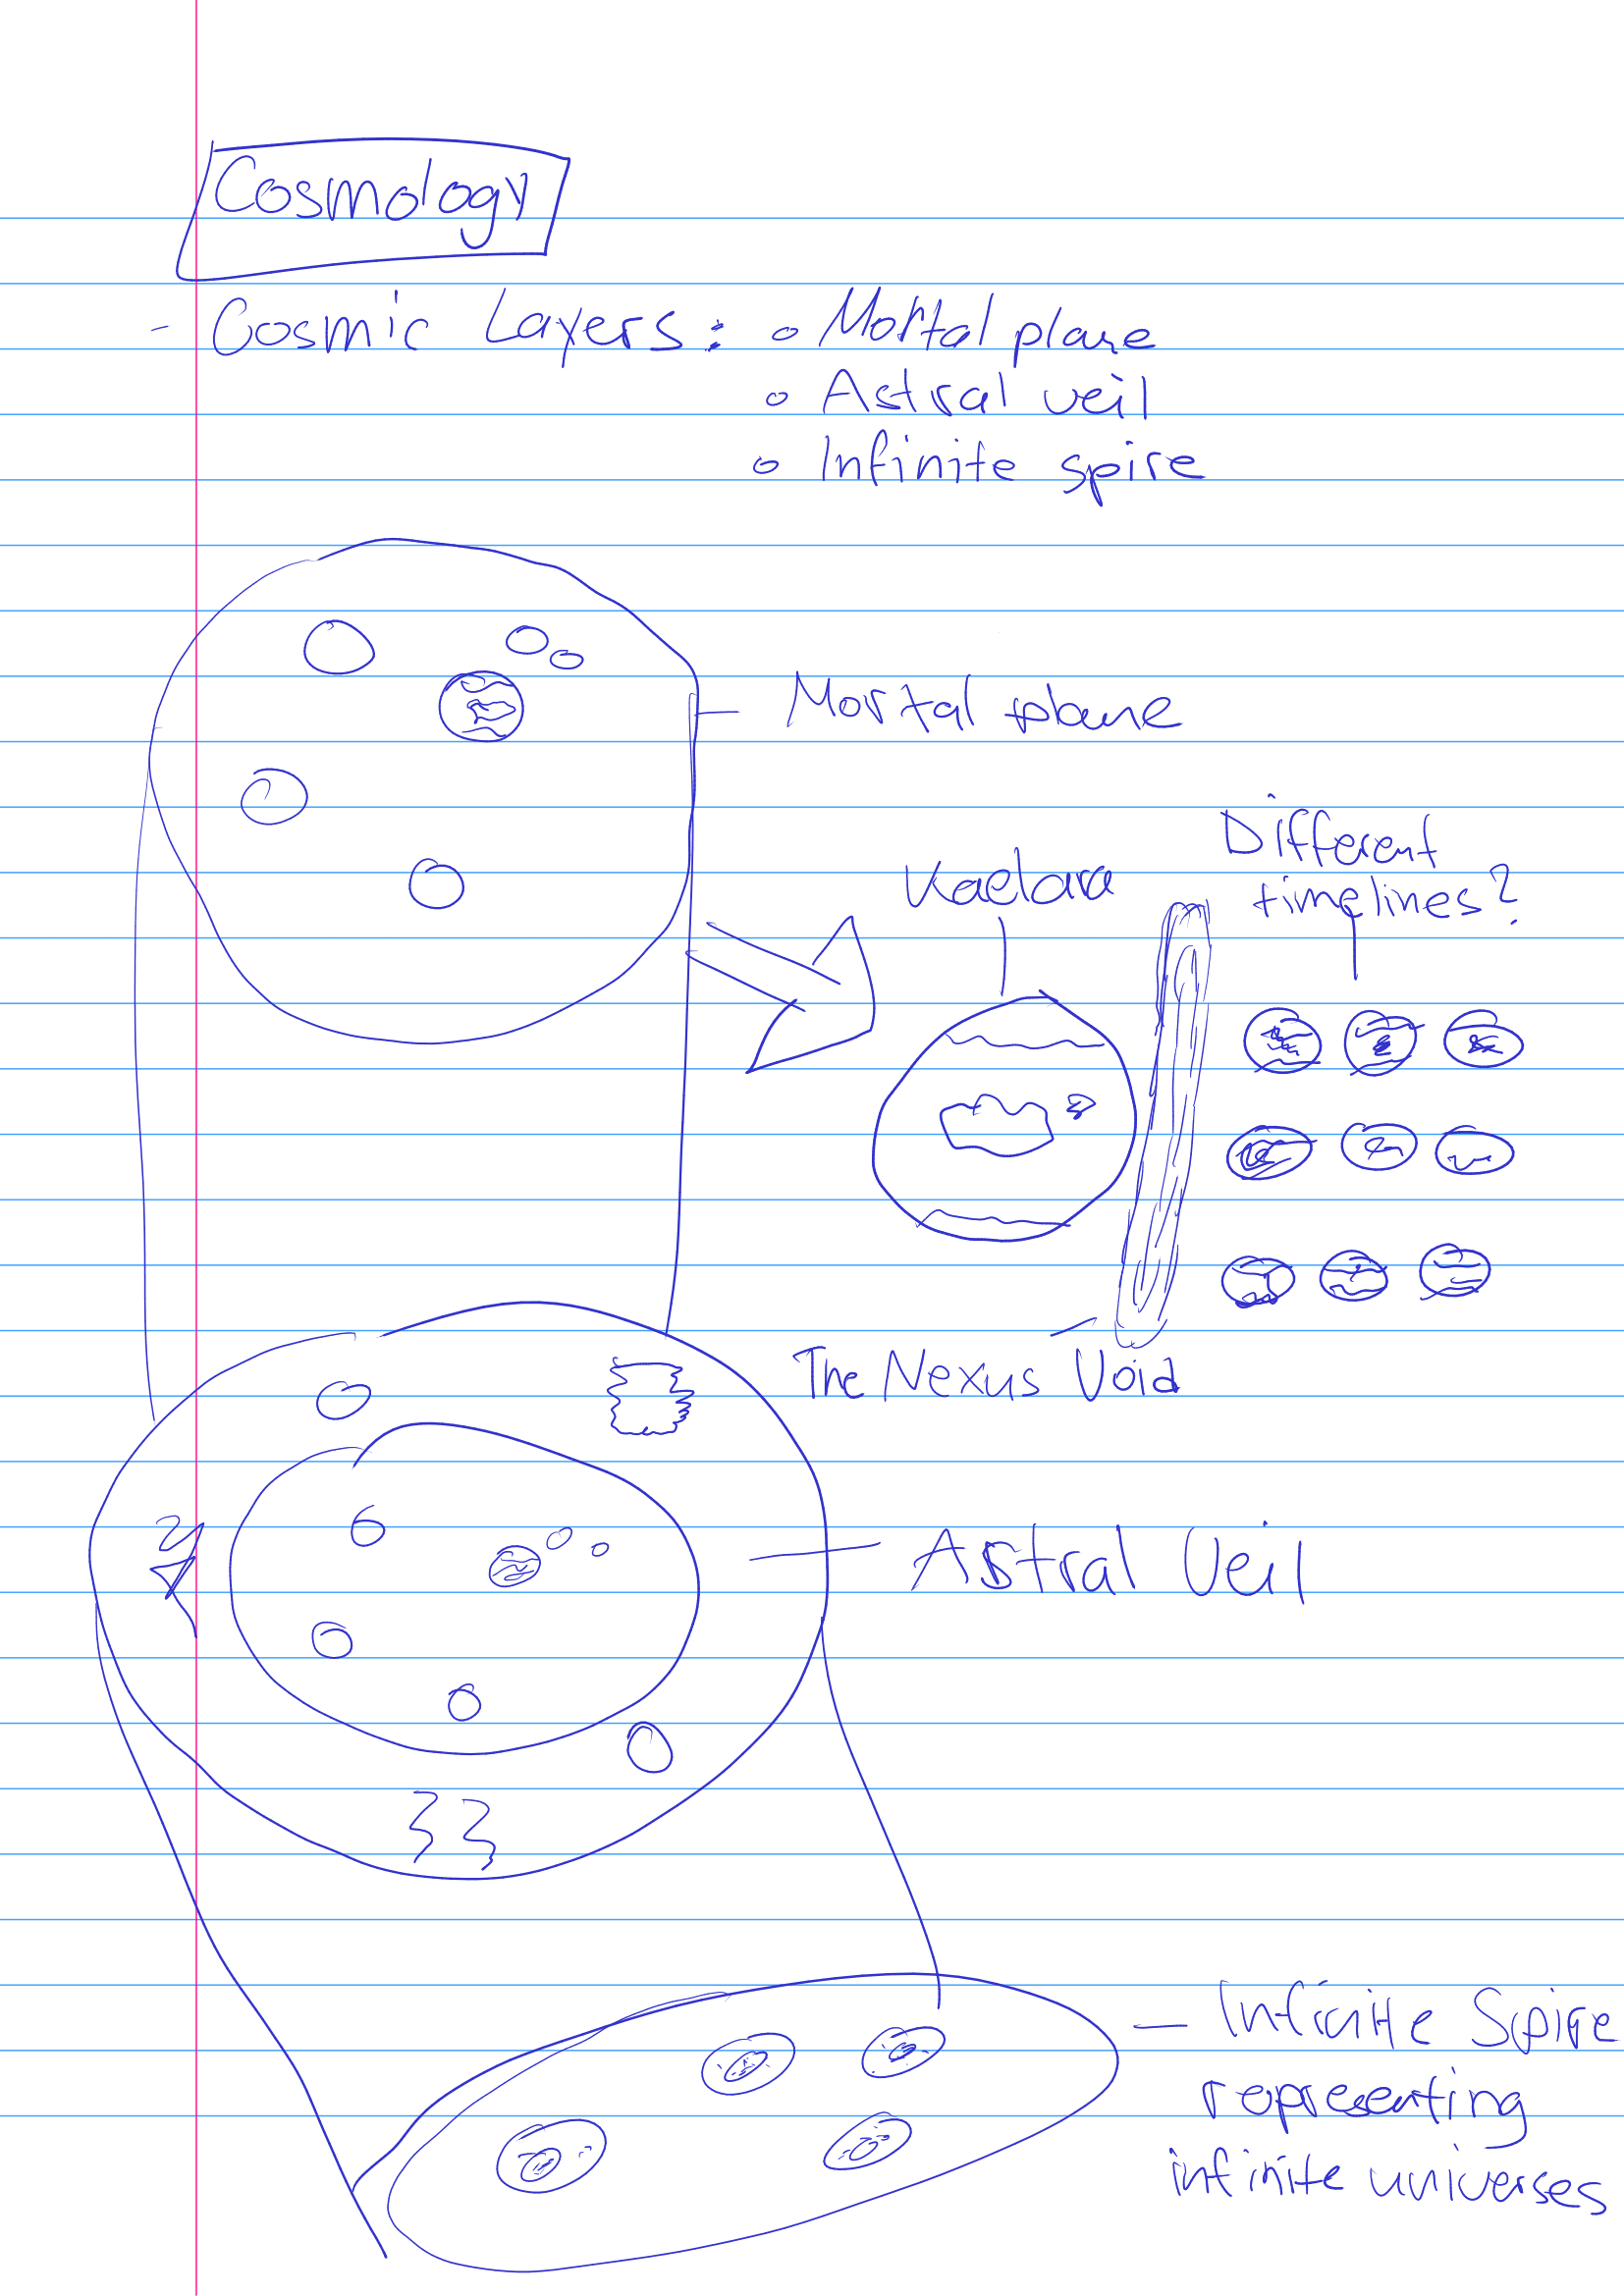 Cosmology
- Cosmic Layers: o Mortal plane
o Astral veil
o Infinite spire
Mortal plane
Different
timelines?
Kaelara
The Nexus Void
Astral Veil
Infinite Spire
representing
infinite universes